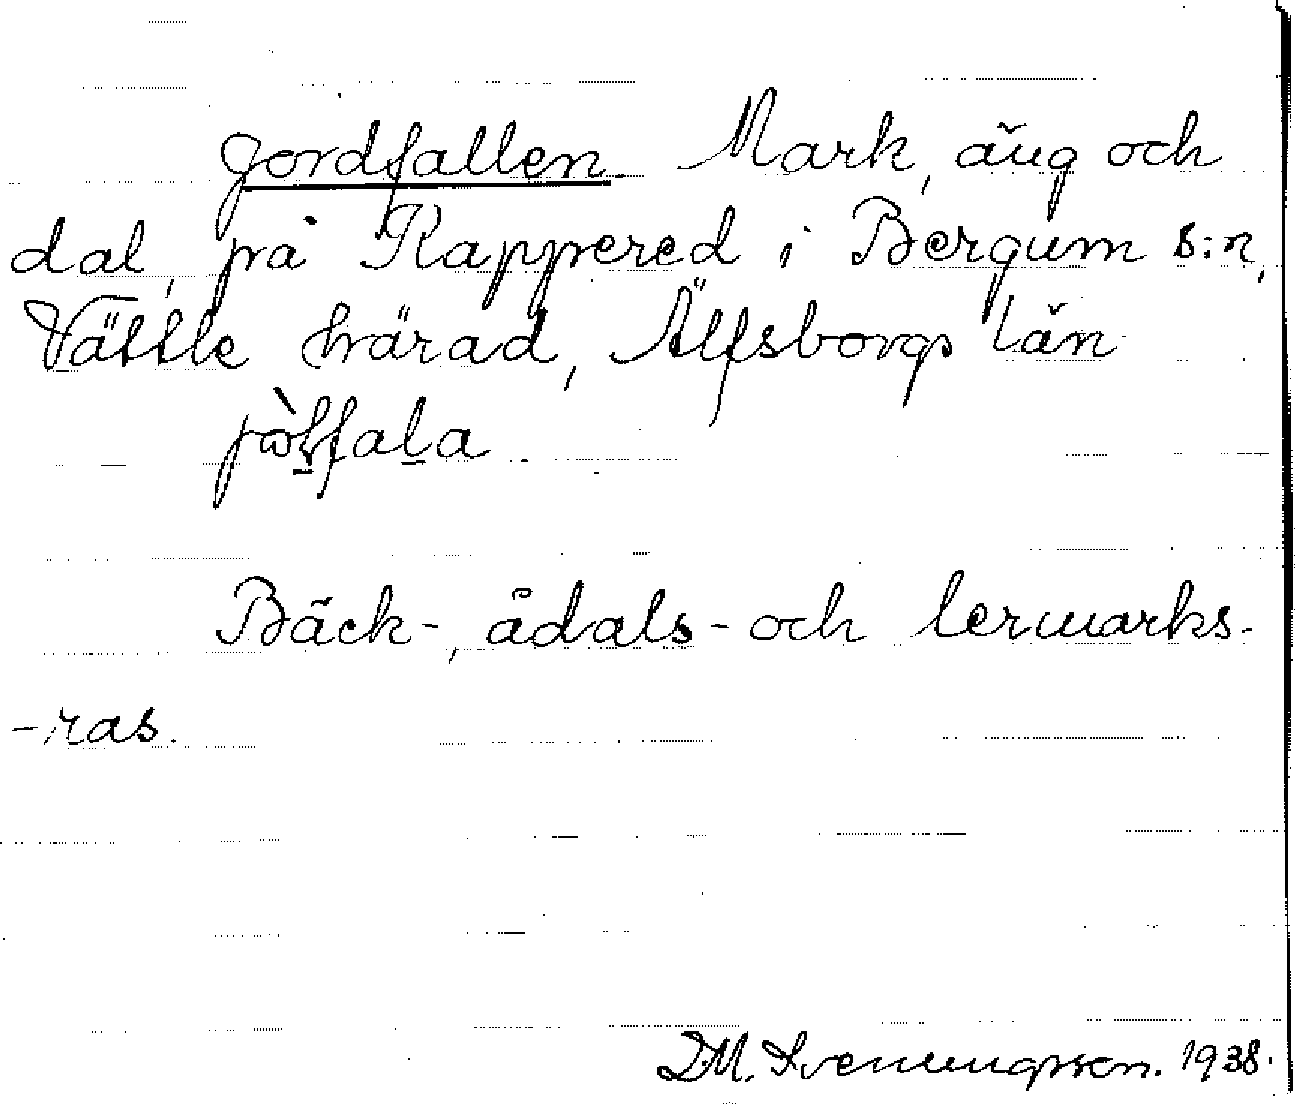 Jordfallen. Mark, äng och
dal, på Rappered i Bergum s:n,
Vättle härad, Älfsborgs län
Bäck-, ådals- och lermarks-
-ras.
D.M. Svenningsson. 1938.